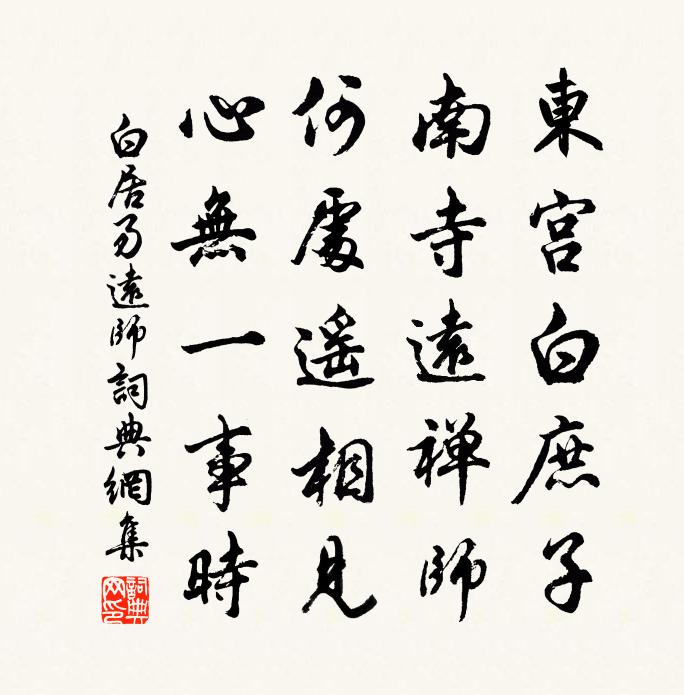 東宮白庶子
南寺遠禅師
何處遥相見
心無一事時
白居易遠師詞典網集
詞典
网印